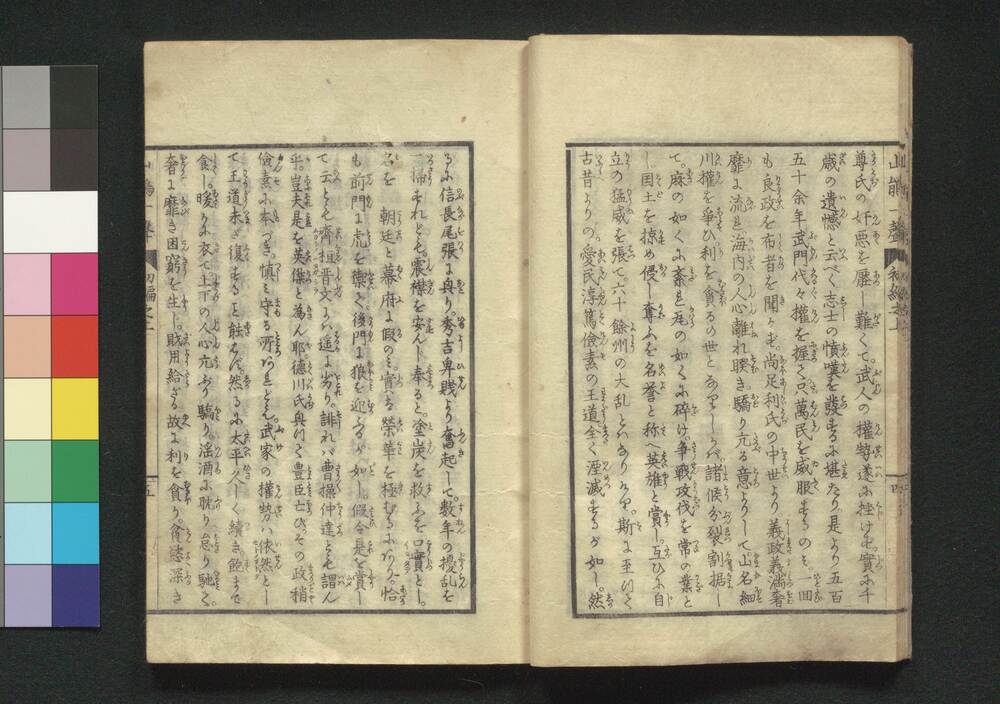 山鵑一聲 初編之上
尊氏の奸悪を歴し難くて。武人の權勢遂に挫け也。實に千
歳の遺憾と云べく志士の憤嘆を發するに堪たり。是より五百
五十余年武門代々權を握て只萬民を威服するのミ。一回
も良政を布者を聞かも。尚足利氏の中世より義政義満奢
靡に流れ。海内の人心離れ睽き。驕り亢る意よりして山名細
川權を爭ひ利を貪るの世となりしかバ。諸候分裂割据し
て。麻の如くに紊れ瓦の如くに碎け。争戦攻伐を常の業と
し。国土を掠め侵し奪ふを名誉と称へ英雄と賞し。互ひに自
立の猛威を張て六十餘州の大乱とハなりにけり。斯に至りて
古昔よりの愛民淳篤儉素の王道全く湮滅するが如し。然
るに信長尾張に興り。秀吉卑賤より奮起して。数年の擾乱を
一掃すれとも。震襟を安んじ奉ると。塗炭を救ふを口實とし。
名を 朝廷と幕府に假のミ。實ハ榮華を極むるにあり。恰
も前門に虎を禦て後門に狼を迎ふるが如し。假令是を賞し
て云とも齊桓晋文にハ遥に劣り。誹れバ曹操仲達とも謂ん
乎。豈夫是を英傑と為ん耶德川氏興りて豊臣亡び。その政稍
儉素に本づき。慎ミ守る所あれども。武家の權勢ハ依然とし
て王道未だ復すると能はず。然るに太平久しく續き飽まで
食し。暖かに衣て。上下の人心亢ぶり驕り滛酒に耽り怠り馳て。
奢に靡き困窮を生し。財用給ざる故に利を貪り。貪慾深き
初編之上
五